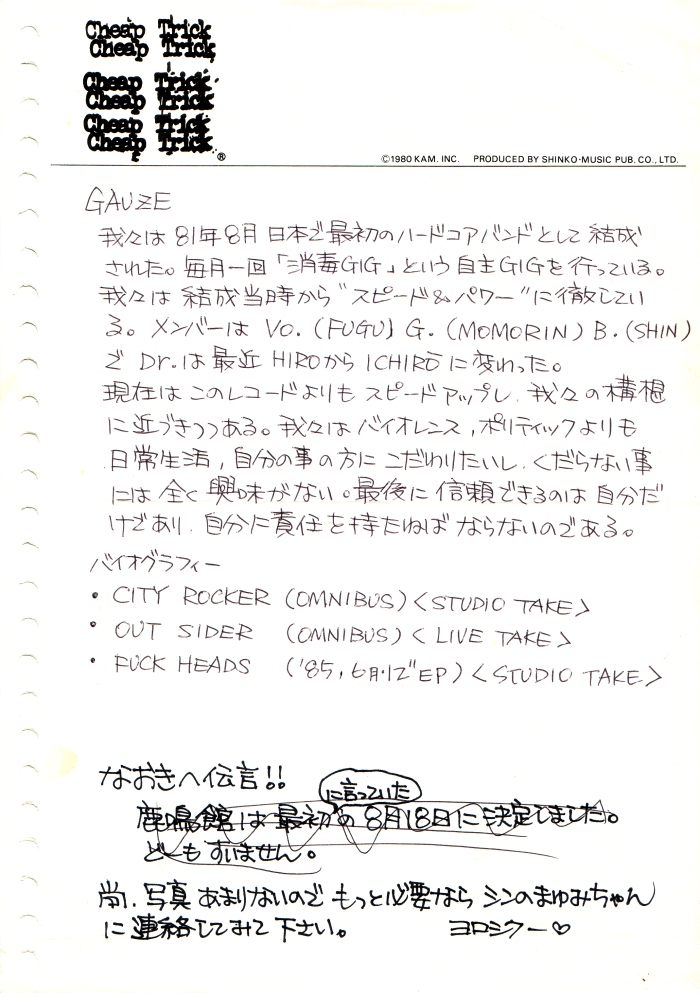 Cheap Trick
Cheap Trick
Cheap Trick
Cheap Trick
Cheap Trick
Cheap Trick®
©1980 KAM. INC. PRODUCED BY SHINKO-MUSIC PUB. CO., LTD.
GAUZE
我々は 81年8月 日本で最初のハードコアバンドとして 結成
された。毎月一回「消毒GIG」という自主GIGを行っている。
我々は 結成当時から"スピード&パワー"に徹してい
る。メンバーは Vo.(FUGU) G.(MOMORIN) B.(SHIN)
で Dr.は最近 HIROから ICHIROに変わった。
現在は このレコードよりも スピードアップし、我々の構想
に近づきつつある。我々は バイオレンス,ポリティックよりも
日常生活,自分の事の方に こだわりたいし、くだらない事
には 全く興味がない。最後に 信頼できるのは 自分だ
けであり、自分に責任を持たねば ならないのである。
バイオグラフィー
・CITY ROCKER (OMNIBUS) <STUDIO TAKE>
・OUT SIDER (OMNIBUS) < LIVE TAKE>
・FUCK HEADS ('85, 6月・12"EP) <STUDIO TAKE>
なおきへ伝言!!
に言っていた
鹿鳴館は 最初の 8月18日に 決定しました。
どーも すいません。
尚、写真 あまりないので もっと必要なら シンのまゆみちゃん
に 連絡してみて 下さい。 ヨロシクー♡